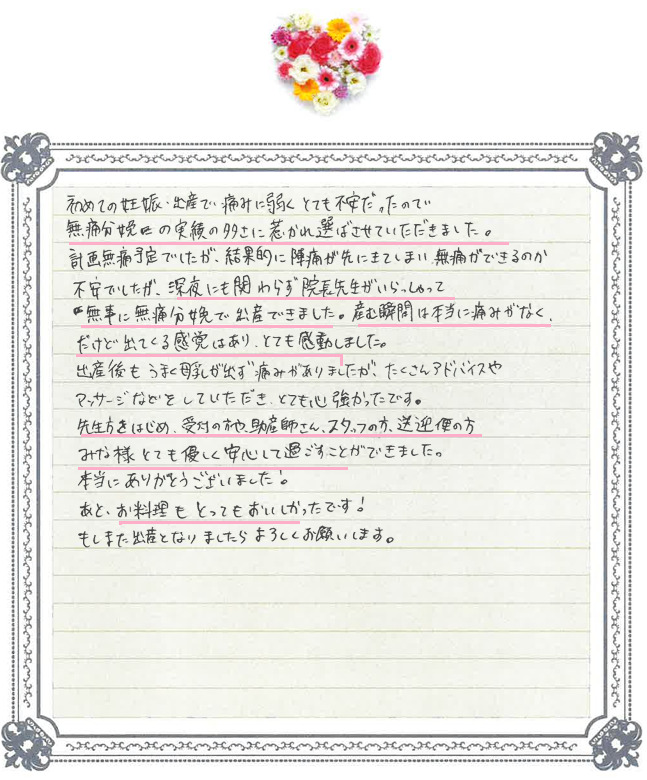 初めての妊娠・出産で痛みに弱くとても不安だったので
無痛分娩の実績の多さに惹かれ選ばさせていただきました。
計画無痛予定でしたが、結果的に陣痛が先にきてしまい無痛ができるのか
不安でしたが、深夜にも関わらず院長先生がいらっしゃって
無事に無痛分娩で出産できました。産む瞬間は本当に痛みがなく、
だけど出てくる感覚はあり、とても感動しました。
出産後もうまく母乳が出ず痛みがありましたが、たくさんアドバイスや
マッサージなどをしていただき、とても心強かったです。
先生方をはじめ、受付の方や、助産師さん、スタッフの方、送迎便の方
みな様とても優しく安心して過ごすことができました。
本当にありがとうございました!。
あと、お料理もとってもおいしかったです!
もしまた出産となりましたらよろしくお願いします。